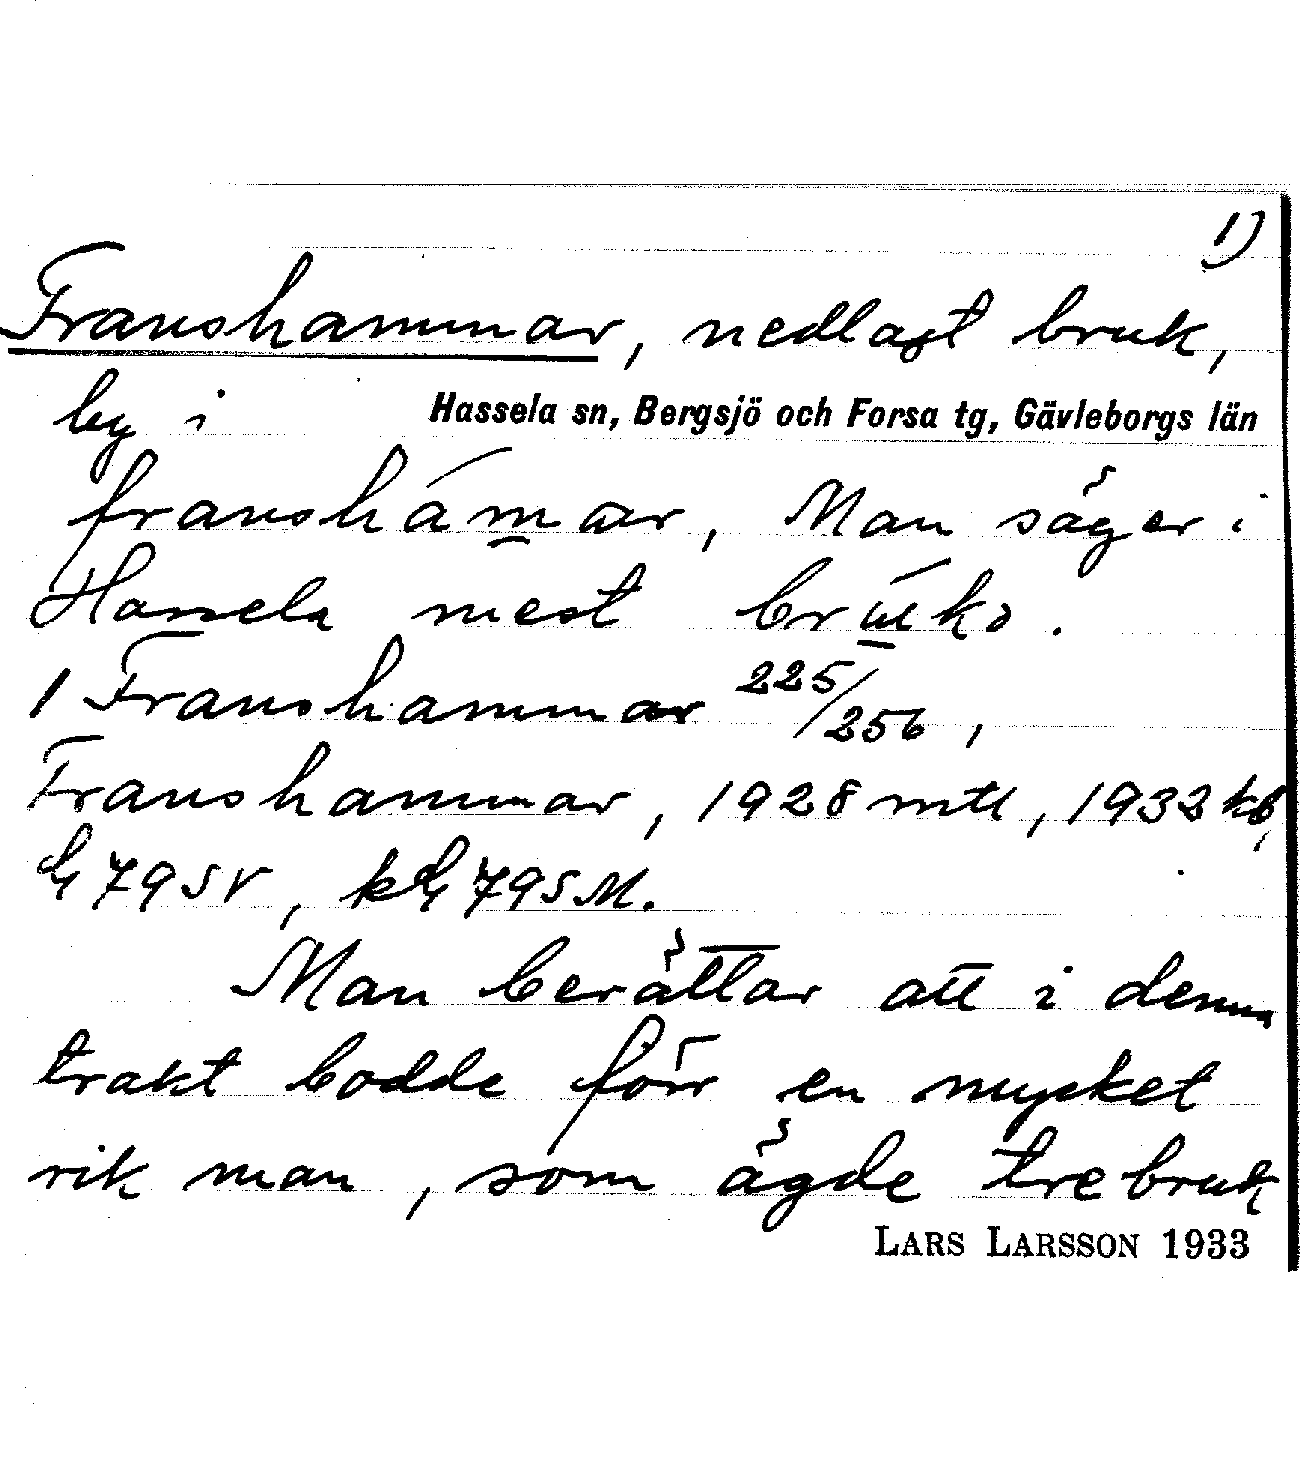 1)
Franshammar, nedlagt bruk,
by i Hassela sn, Bergsjö och Forsa tg, Gävleborgs län
franshámar, Man säger i
Hassela mest brúko.
1 Franshammar 225/256,
Franshammar, 1928 mtl, 1933 kb,
G 795V, kG 795M.
Man berättar att i denna
trakt bodde förr en mycket
rik man, som ägde tre bruk
LARS LARSSON 1933